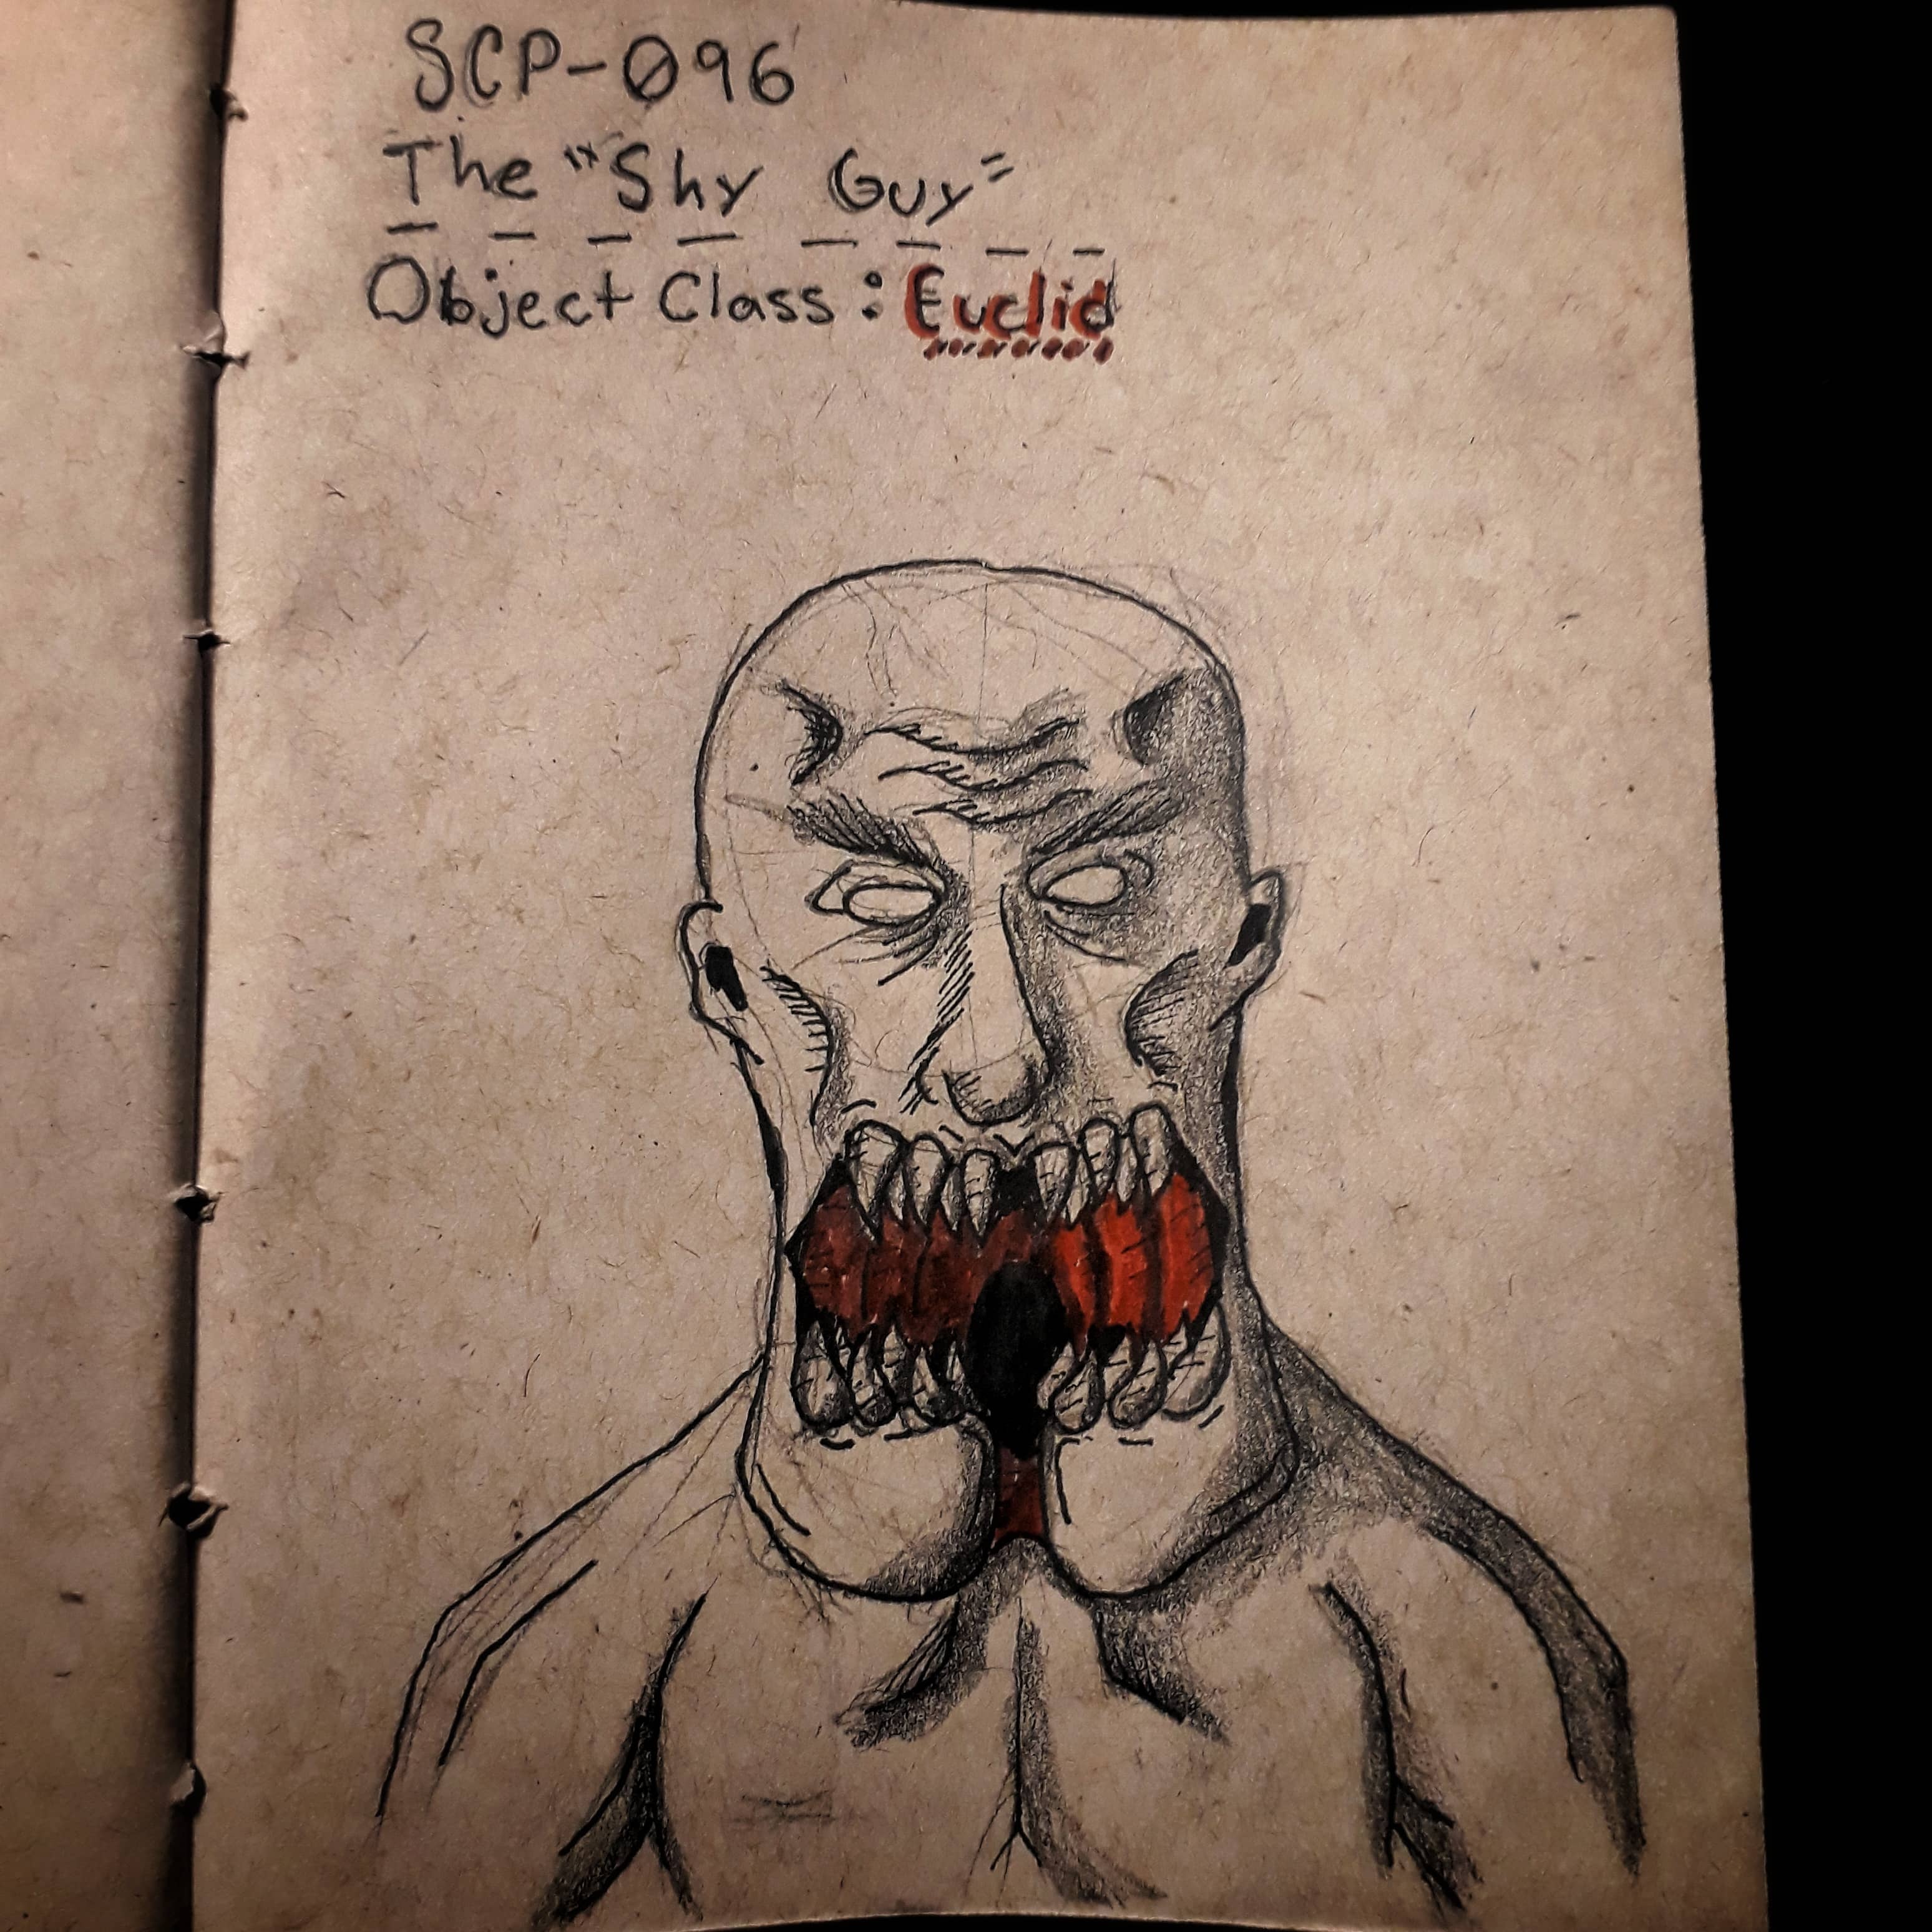 SCP-096
The "Shy Guy"
Object Class: Euclid